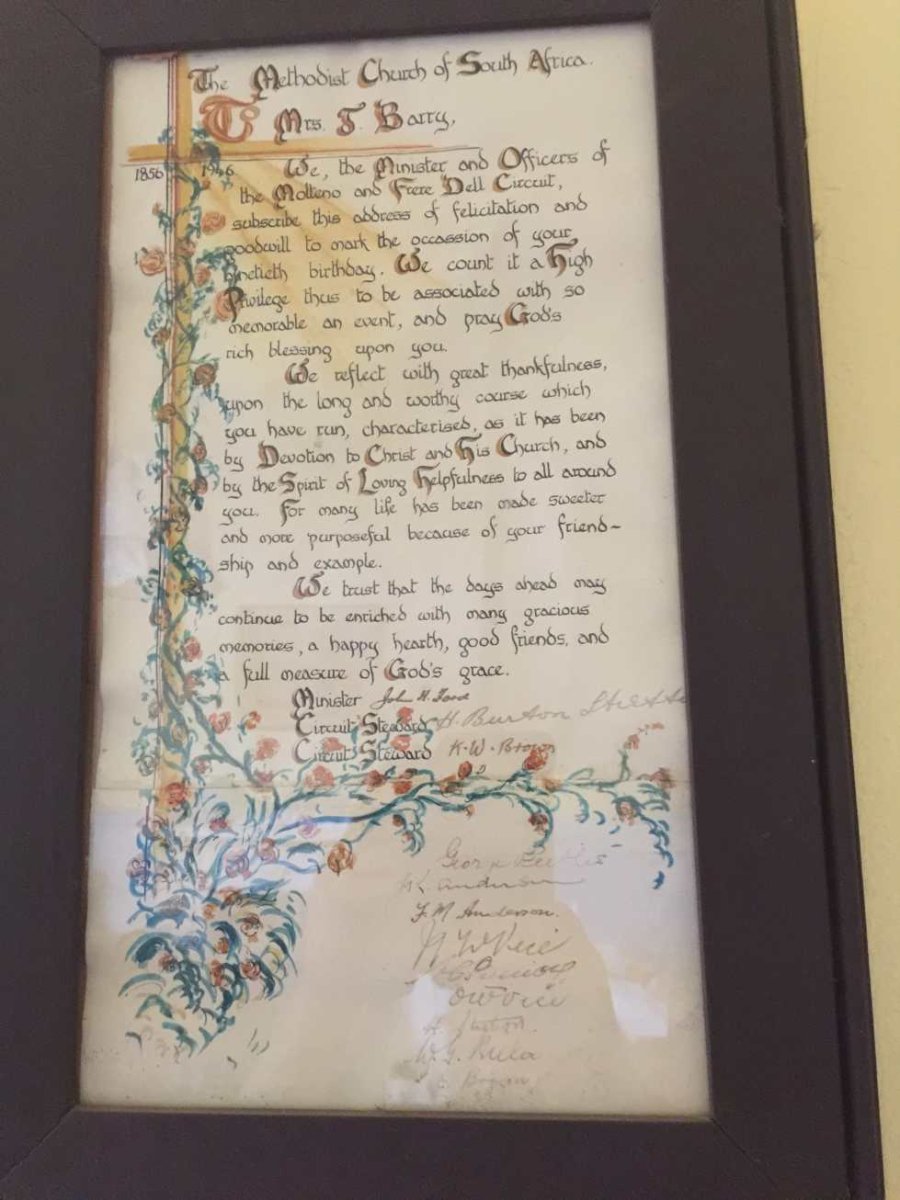 The Methodist Church of South Africa.
To Mrs. T. Barry,
1856 1946
We, the Minister and Officers of
the Molteno and Frere Dell Circuit,
subscribe this address of felicitation and
goodwill to mark the occassion of your
ninetieth birthday. We count it a High
Privilege thus to be associated with so
memorable an event, and pray God's
rich blessing upon you.
We reflect with great thankfulness,
upon the long and worthy course which
you have run, characterised, as it has been
by Devotion to Christ and His Church, and
by the Spirit of Loving Helpfulness to all around
you. For many life has been made sweeter
and more purposeful because of your friend~
ship and example.
We trust that the days ahead may
continue to be enriched with many gracious
memories, a happy hearth, good friends, and
a full measure of God's grace.
Minister John H.
Circuit Steward H. Burton
Circuit Steward K. W. Brown
George
Anderson
F. M. Anderson.